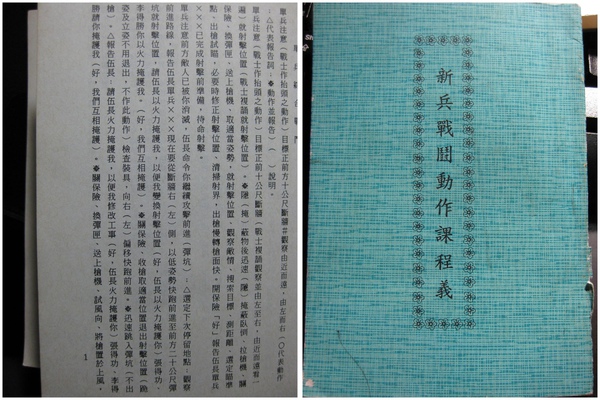 單兵注意（戰士作抬頭之動作）目標正前方十公尺斷牆＃觀察由近而遠，由左而右（○代表動作
：△代表報告詞：※動作並報告）（　）說明。
單兵注意（戰士作抬頭之動作）目標正前十公尺斷牆（戰士複誦觀察並由左至右，由近而遠看一
遍）就射擊位置（戰士複誦就射擊位置）。※隱（掩）蔽物後迅速（隱）掩蔽臥倒、拉槍機、關
保險、換彈匣、送上槍機、取適當姿勢，就射擊位置，觀察敵情、搜索目標、測距離、選定瞄準
點、出槍試瞄，必要時修正射擊位置、清掃射界，出槍慢轉槍面快。開保險「好」報告伍長單兵
×××已完成射擊前準備，待命射擊。
單兵注意前方敵人已被你消滅，伍長命令你繼續攻擊前進（彈坑）：△選定下次停留地點，觀察
前進路線，報告伍長單兵×××現在要從斷牆右（左）側，以低姿勢快跑前進至前方二十公尺彈
坑就射擊位置，請伍長以火力掩護我，以便我變換射擊位置（好，伍長以火力掩護你）張得功、
李得勝你以火力掩護我，（好，我們互相掩護）。※關保險、收槍取適當位置退出射擊位置（跪
姿及立姿不用退出，不作此動作）檢查裝具，向右（左）偏移快跑前進。※迅速跳入彈坑（不出
槍）。△報告伍長，請伍長火力掩護我，以便我修改工事（好，伍長火力掩護你）張得功、李得
勝請你掩護我（好，我們互相掩護）。※關保險、換彈匣、送上槍機、試風向、將槍置於上風，
1
新兵戰鬪動作課程義